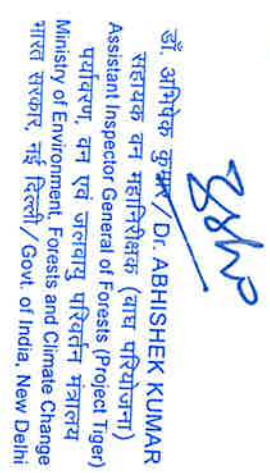 डॉ. अभिषेक कुमार/Dr. ABHISHEK KUMAR
सहायक वन महानिरीक्षक (बाघ परियोजना)
Assistant Inspector General of Forests (Project Tiger)
पर्यावरण, वन एवं जलवायु परिवर्तन मंत्रालय
Ministry of Environment, Forests and Climate Change
भारत सरकार, नई दिल्ली/Govt. of India, New Delhi